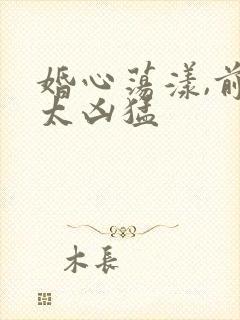 婚心荡漾,前
太凶猛
木長